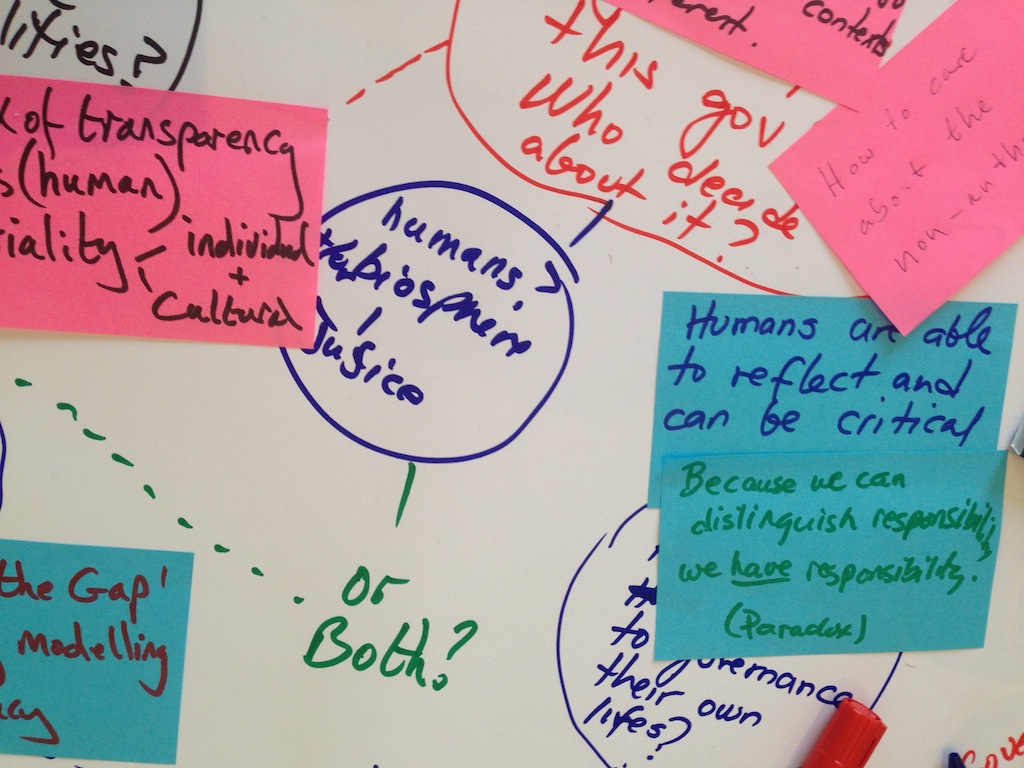 lities?
of transparency
(human)
riality
individual
+
Cultural
this gov
Who decide
about it?
erent.
contexts
How to care
about the
non-
humans?
biosphere
Justice
Humans are able
to reflect and
can be critical
Because we can
distinguish responsibility
we have responsibility.
(Paradox)
to governance
their own
lifes?
or
Both?
the Gap'
modelling
acy